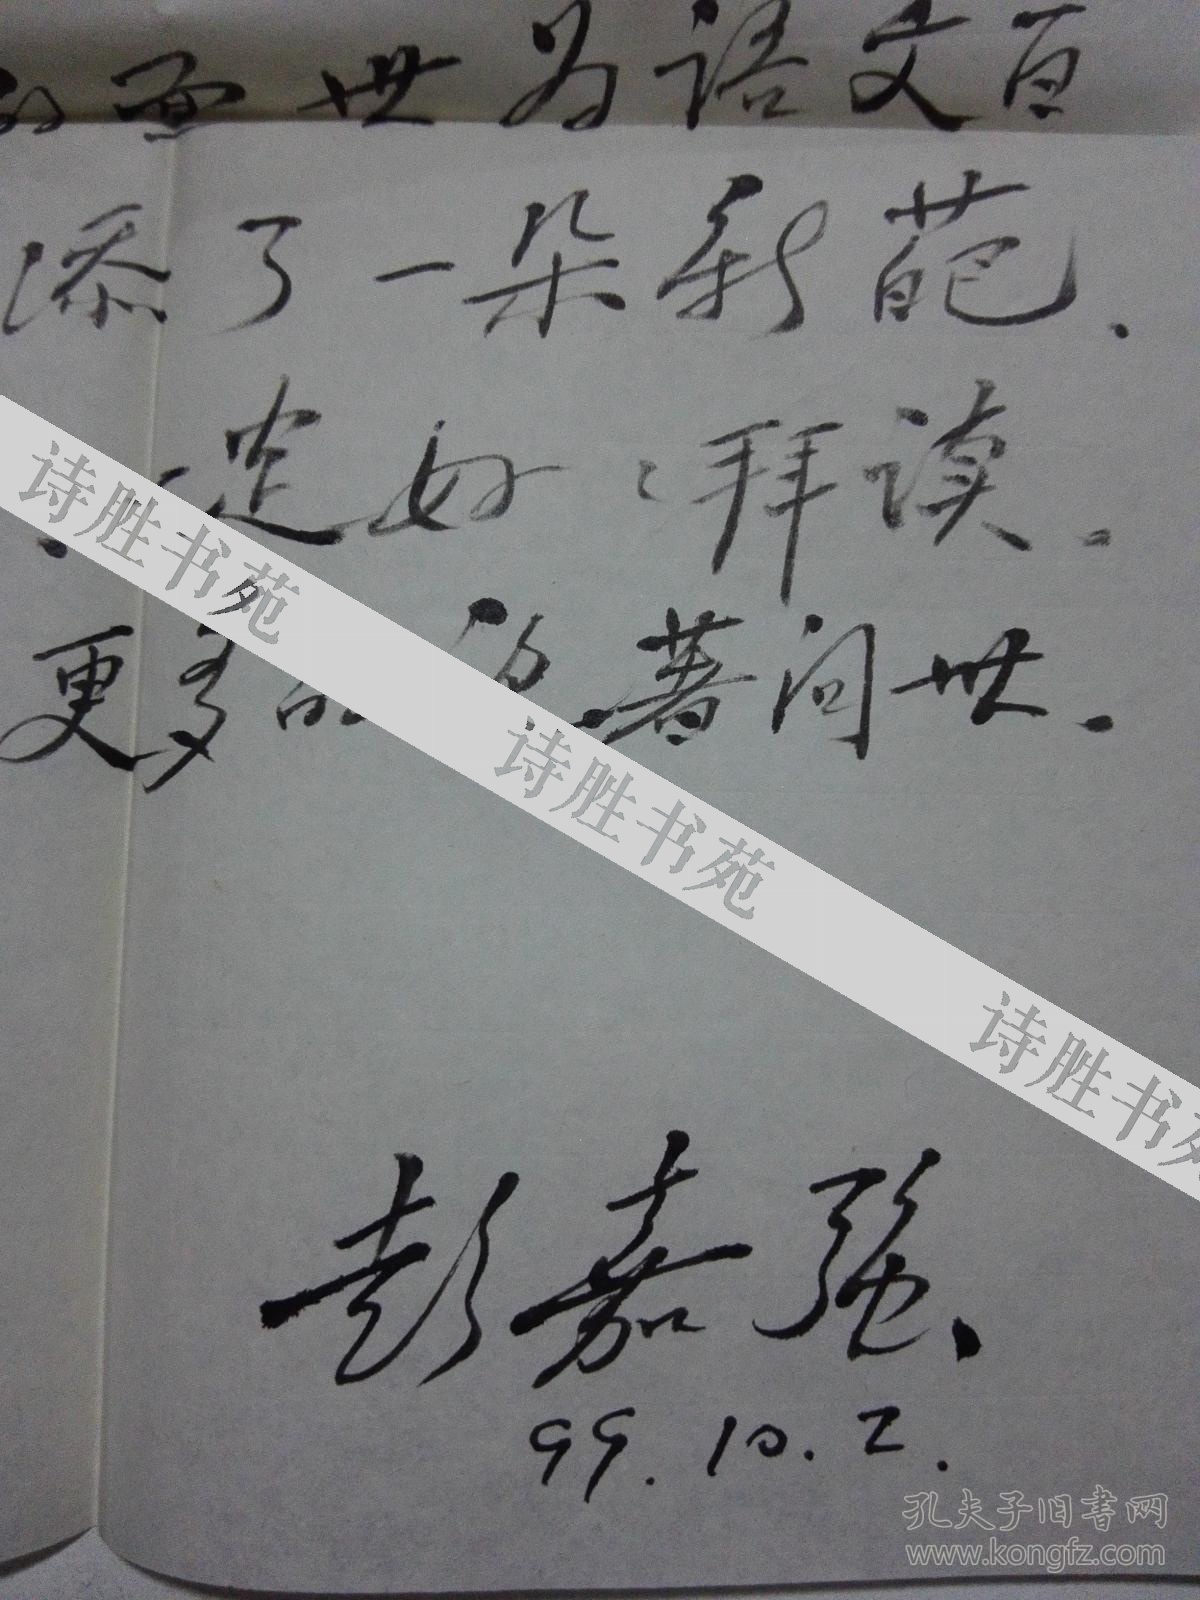 的面世为语文百
添了一朵新葩.
一定好好拜读.
更多的 著问世.
诗胜书苑
诗胜书苑
诗胜书苑
彭嘉强
99.10.2.
孔夫子旧书网
www.kongfz.com